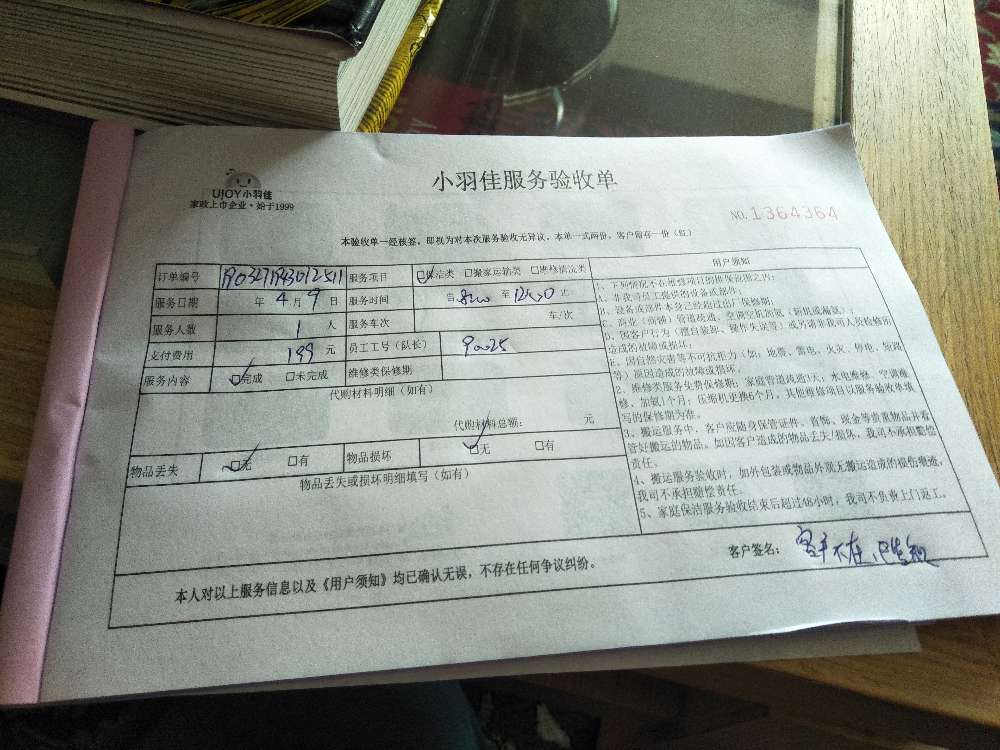 UJOY小羽佳
家政上市企业·始于1999
小羽佳服务验收单
NO.1364364
本验收单一经核签,即视为对本次服务验收无异议,本单一式两份,客户留存一份(红)
订单编号 服务项目 □保洁类 □搬家运输类 □维修清洗类
服务日期 年 4 月 9 日 服务时间 自 8:00 至 12:00 止
服务人数 1 人 服务车次 车/次
支付费用 199 元 员工工号(队长) 90025
服务内容 □完成 □未完成 维修类保修期
代购材料明细(如有)
代购材料总额: 元
物品丢失 □无 □有 物品损坏 □无 □有
物品丢失或损坏明细填写(如有)
用户须知
1、下列情况不在维修项目的维保范围之内:
A、非我司员工提供的设备或部件;
B、设备或部件本身已经超过出厂保修期;
C、商业(商铺)管道疏通、空调空机加氨(新机或漏氨);
D、因客户行为(擅自拆卸、操作失误等)或另请非我司人员检修所
造成的故障或损坏;
E、因自然灾害等不可抗拒力(如:地震、雷电、火灾、停电、短路
等)原因造成的故障或损坏。
2、维修类服务免费保修期:家庭管道疏通3天;水电维修、空调维
修、加氨1个月;压缩机更换6个月,其他维修项目以服务验收单填
写的保修期为准。
3、搬运服务中,客户应随身保管证件、首饰、现金等贵重物品并看
管好搬运的物品。如因客户造成的物品丢失/损坏,我司不承担赔偿
责任。
4、搬运服务验收时,如外包装或物品外观无搬运造成的损伤痕迹,
我司不承担赔偿责任。
5、家庭保洁服务验收结束后超过48小时,我司不负责上门返工。
客户签名: 客户不在,已告知
本人对以上服务信息以及《用户须知》均已确认无误,不存在任何争议纠纷。